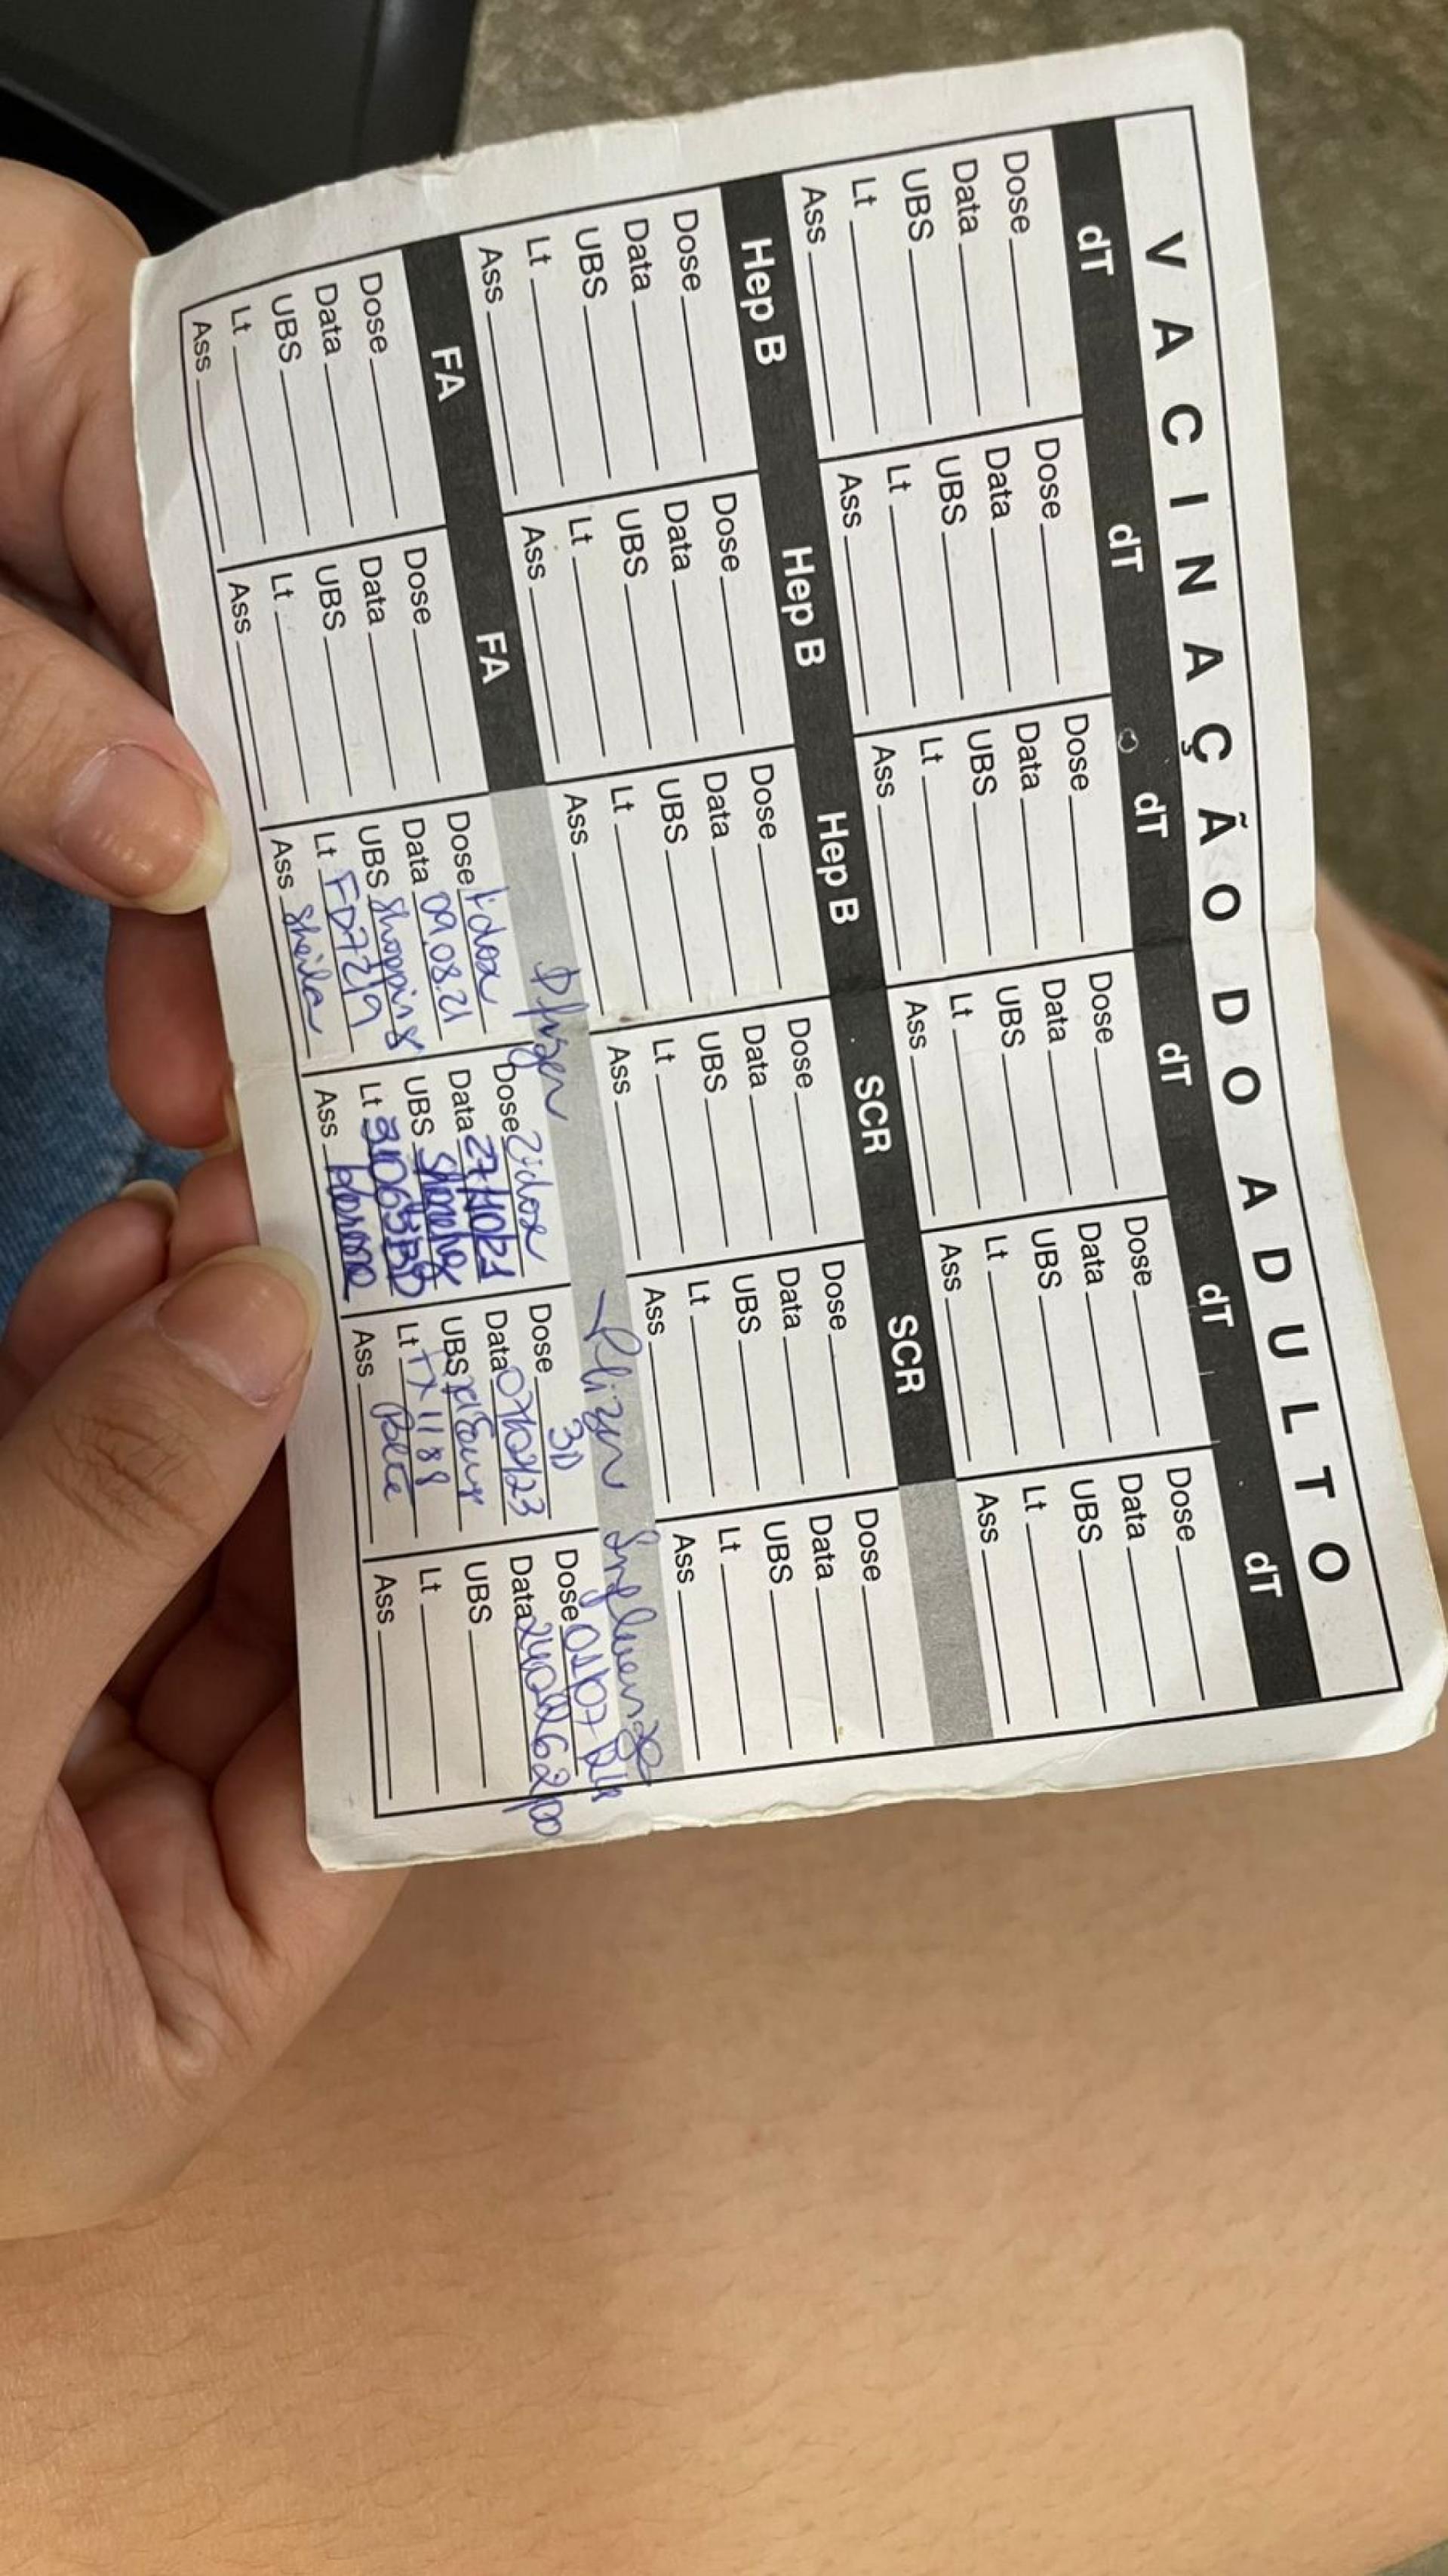 VACINAÇÃO DO ADULTO
dT dT dT dT dT dT
Dose Dose Dose Dose Dose Dose
Data Data Data Data Data Data
UBS UBS UBS UBS UBS UBS
Lt Lt Lt Lt Lt Lt
Ass Ass Ass Ass Ass Ass
Hep B Hep B Hep B SCR SCR
Dose Dose Dose Dose Dose Dose
Data Data Data Data Data Data
UBS UBS UBS UBS UBS UBS
Lt Lt Lt Lt Lt Lt
Ass Ass Ass Ass Ass Ass
FA FA Pfizer Influenza
Dose Dose Dose 1ªdose Dose 2ªdose Dose 3D Dose 01/07
Data Data Data 09.08.21 Data 27/10/21 Data 07/02/23 Data
UBS UBS UBS Shopping UBS UBS UBS
Lt Lt Lt FD7219 Lt Lt TX1188 Lt
Ass Ass Ass Sheila Ass Ass Ass